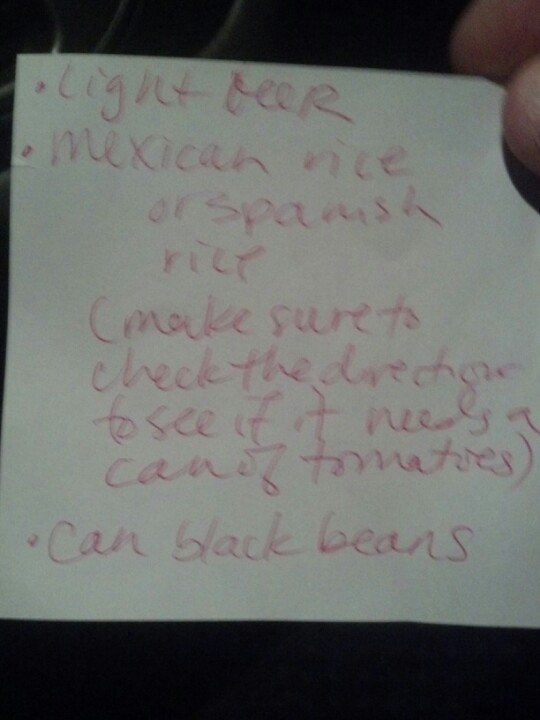 • Light beer
• Mexican rice
or spanish
rice
(make sure to
check the directions
to see if it needs a
can of tomatoes)
• Can black beans